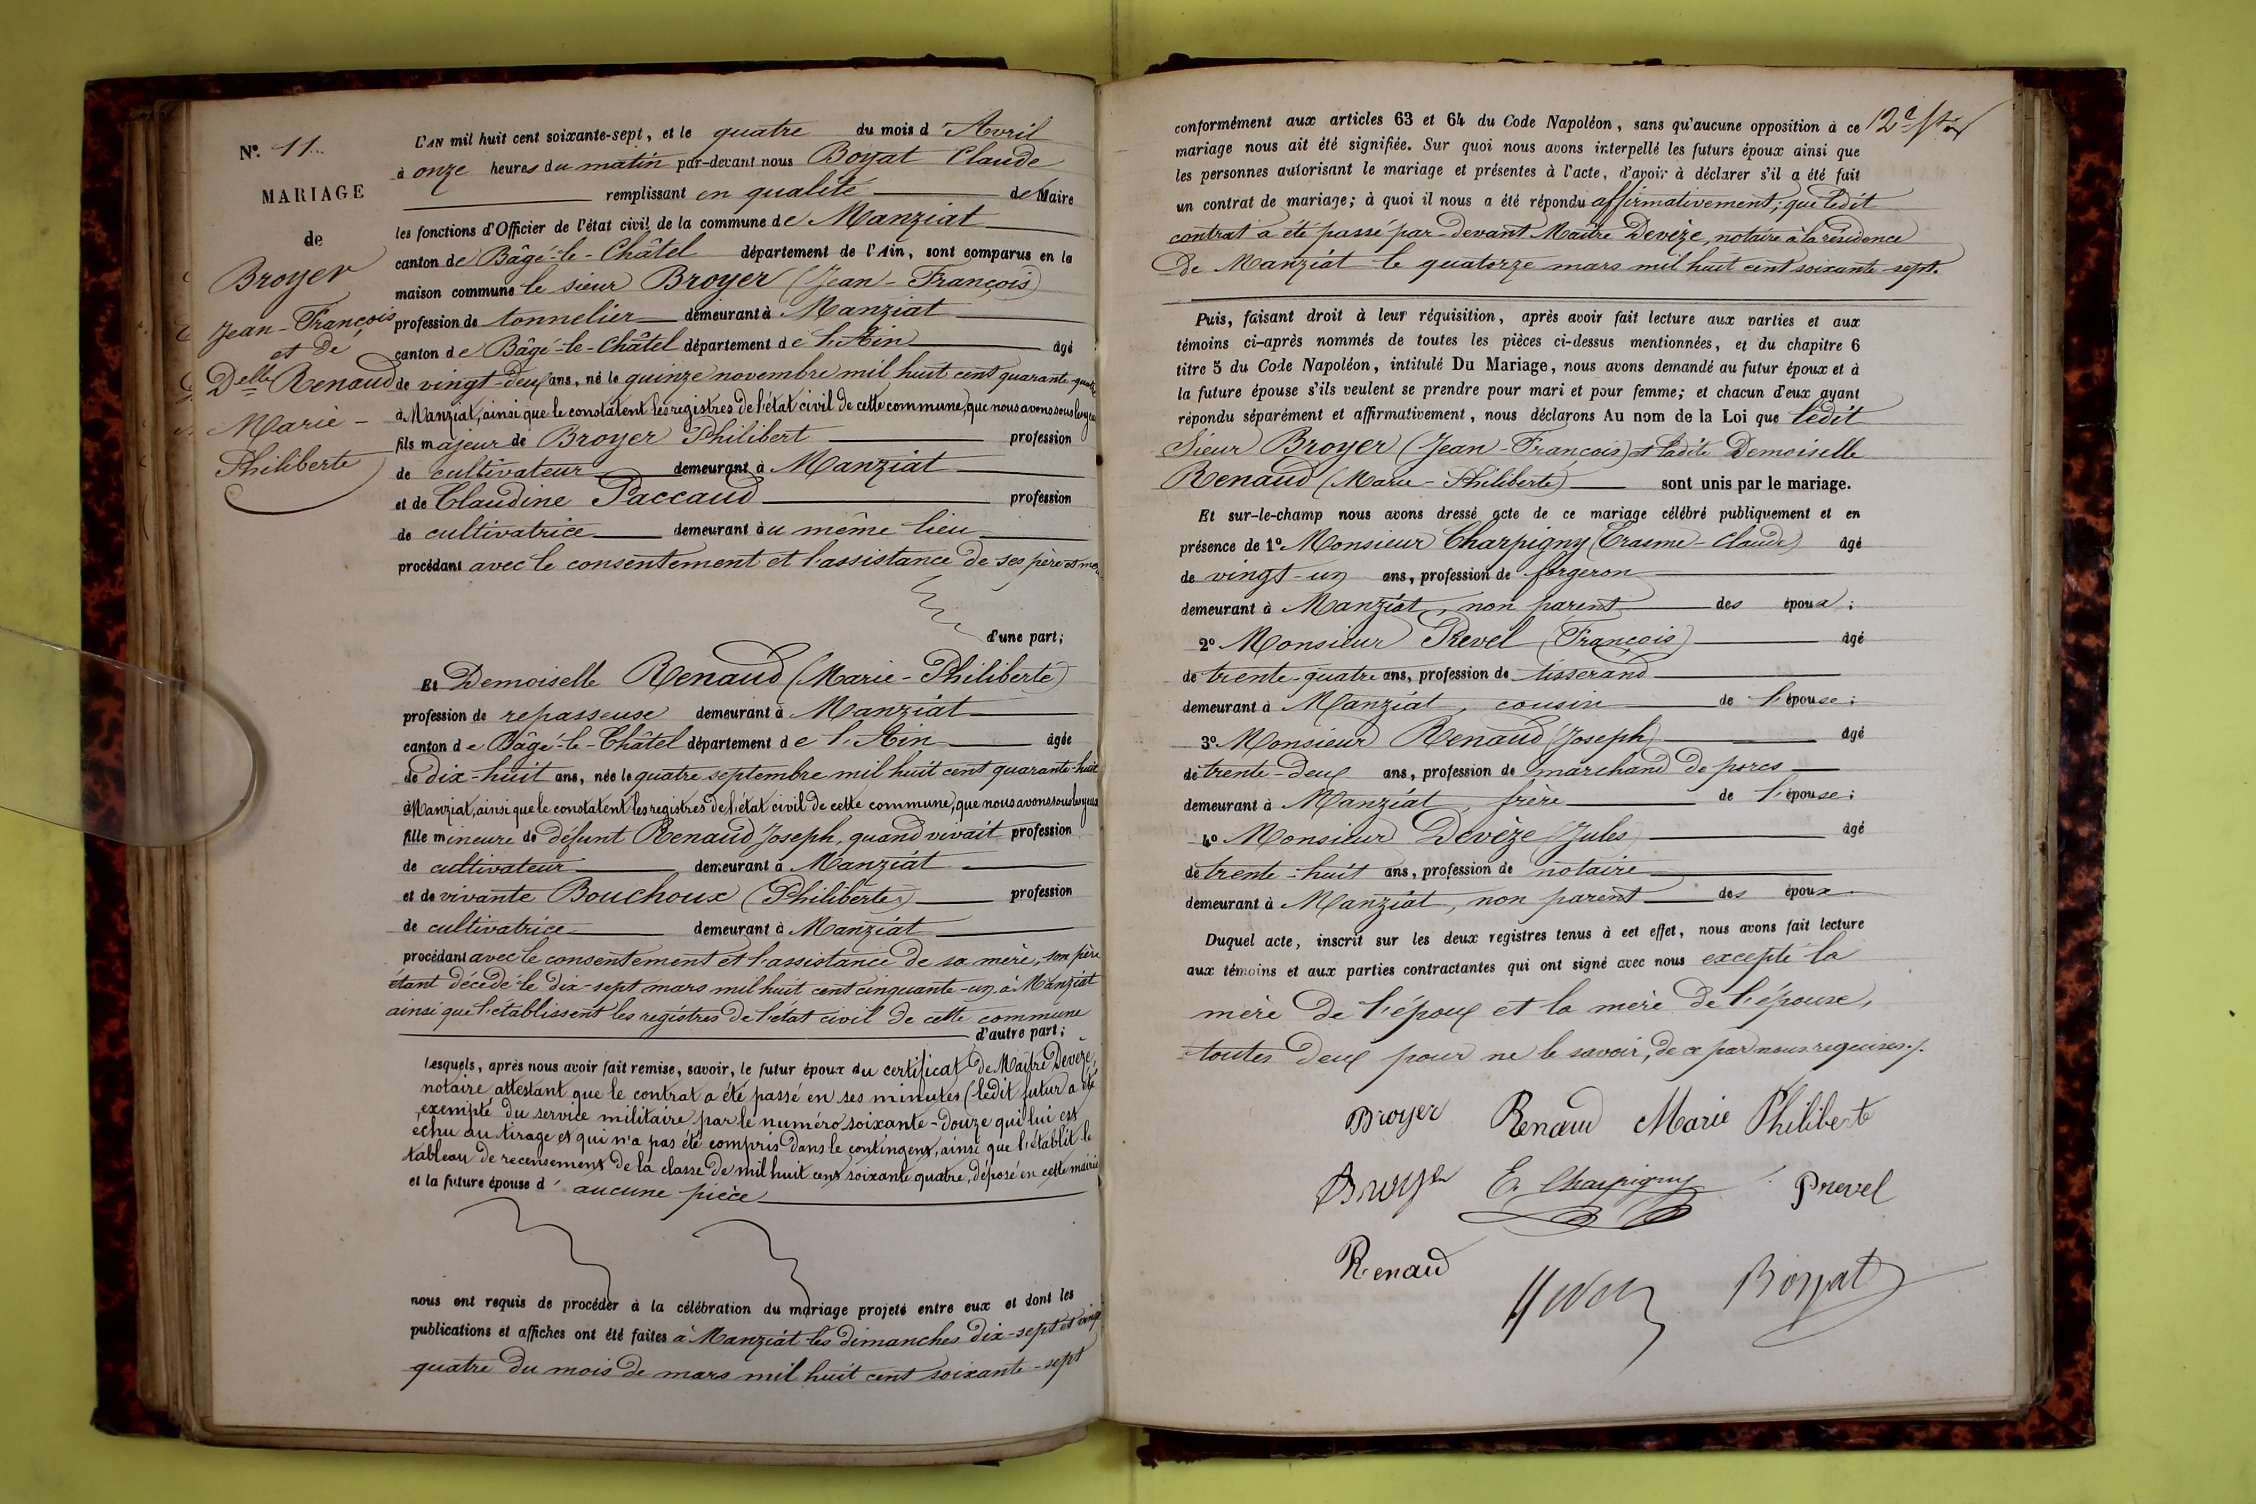 N°. 11.
MARIAGE
de
Broyer
Jean-François
et de
Delle Renaud
Marie-
Philiberte
L'AN mil huit cent soixante-sept, et le quatre du mois d'Avril
à onze heures du matin par-devant nous Boyat Claude
remplissant en qualité de Maire
les fonctions d'Officier de l'état civil de la commune de Manziat
canton de Bâgé-le-Châtel département de l'Ain, sont comparus en la
maison commune le sieur Broyer (Jean-François)
profession de tonnelier demeurant à Manziat
canton de Bâgé-le-Châtel département de l'Ain âgé
de vingt-deux ans, né le quinze novembre mil huit cent quarante-quatre
à Manziat, ainsi que le constatent les registres de l'état civil de cette commune, que nous avons sous les yeux
fils majeur de Broyer Philibert profession
de cultivateur demeurant à Manziat
et de Claudine Paccaud profession
de cultivatrice demeurant au même lieu
procédant avec le consentement et l'assistance de ses père et mère
d'une part;
Et Demoiselle Renaud (Marie-Philiberte)
profession de repasseuse demeurant à Manziat
canton de Bâgé-le-Châtel département de l'Ain âgée
de dix-huit ans, née le quatre septembre mil huit cent quarante-huit
à Manziat, ainsi que le constatent les registres de l'état civil de cette commune, que nous avons sous les yeux
fille mineure de défunt Renaud Joseph, quand vivait profession
de cultivateur demeurant à Manziat
et de vivante Bouchoux (Philiberte) profession
de cultivatrice demeurant à Manziat
procédant avec le consentement et l'assistance de sa mère, son père
étant décédé le dix-sept mars mil huit cent cinquante-un à Manziat
ainsi que l'établissent les registres de l'état civil de cette commune
d'autre part;
Lesquels, après nous avoir fait remise, savoir, le futur époux du certificat de Maître Devèze,
notaire, attestant que le contrat a été passé en ses minutes (ledit futur a été
exempté du service militaire par le numéro soixante-douze qui lui est
échu au tirage et qui n'a pas été compris dans le contingent, ainsi que l'établit le
tableau de recensement de la classe de mil huit cent soixante quatre, déposé en cette mairie
et la future épouse d'aucune pièce
nous ont requis de procéder à la célébration du mariage projeté entre eux et dont les
publications et affiches ont été faites à Manziat les dimanches dix-sept et vingt
quatre du mois de mars mil huit cent soixante-sept
12e
conformément aux articles 63 et 64 du Code Napoléon, sans qu'aucune opposition à ce
mariage nous ait été signifiée. Sur quoi nous avons interpellé les futurs époux ainsi que
les personnes autorisant le mariage et présentes à l'acte, d'avoir à déclarer s'il a été fait
un contrat de mariage; à quoi il nous a été répondu affirmativement; que ledit
contrat a été passé par-devant Maître Devèze, notaire à la résidence
de Manziat le quatorze mars mil huit cent soixante-sept.
Puis, faisant droit à leur réquisition, après avoir fait lecture aux parties et aux
témoins ci-après nommés de toutes les pièces ci-dessus mentionnées, et du chapitre 6
titre 5 du Code Napoléon, intitulé Du Mariage, nous avons demandé au futur époux et à
la future épouse s'ils veulent se prendre pour mari et pour femme; et chacun d'eux ayant
répondu séparément et affirmativement, nous déclarons Au nom de la Loi que ledit
Sieur Broyer (Jean-François) et ladite Demoiselle
Renaud (Marie-Philiberte) sont unis par le mariage.
Et sur-le-champ nous avons dressé acte de ce mariage célébré publiquement et en
présence de 1° Monsieur Charpigny (Erasme-Claude) âgé
de vingt-un ans, profession de forgeron
demeurant à Manziat, non parent des époux;
2° Monsieur Prevel (François) âgé
de trente-quatre ans, profession de tisserand
demeurant à Manziat, cousin de l'épouse;
3° Monsieur Renaud (Joseph) âgé
de trente-deux ans, profession de marchand de porcs
demeurant à Manziat, frère de l'épouse;
4° Monsieur Devèze (Jules) âgé
de trente-huit ans, profession de notaire
demeurant à Manziat, non parent des époux
Duquel acte, inscrit sur les deux registres tenus à cet effet, nous avons fait lecture
aux témoins et aux parties contractantes qui ont signé avec nous excepté la
mère de l'époux et la mère de l'épouse,
toutes deux pour ne le savoir, de ce par nous requises./.
Broyer Renaud Marie Philiberte
Broyer E. Charpigny Prevel
Renaud Boyat